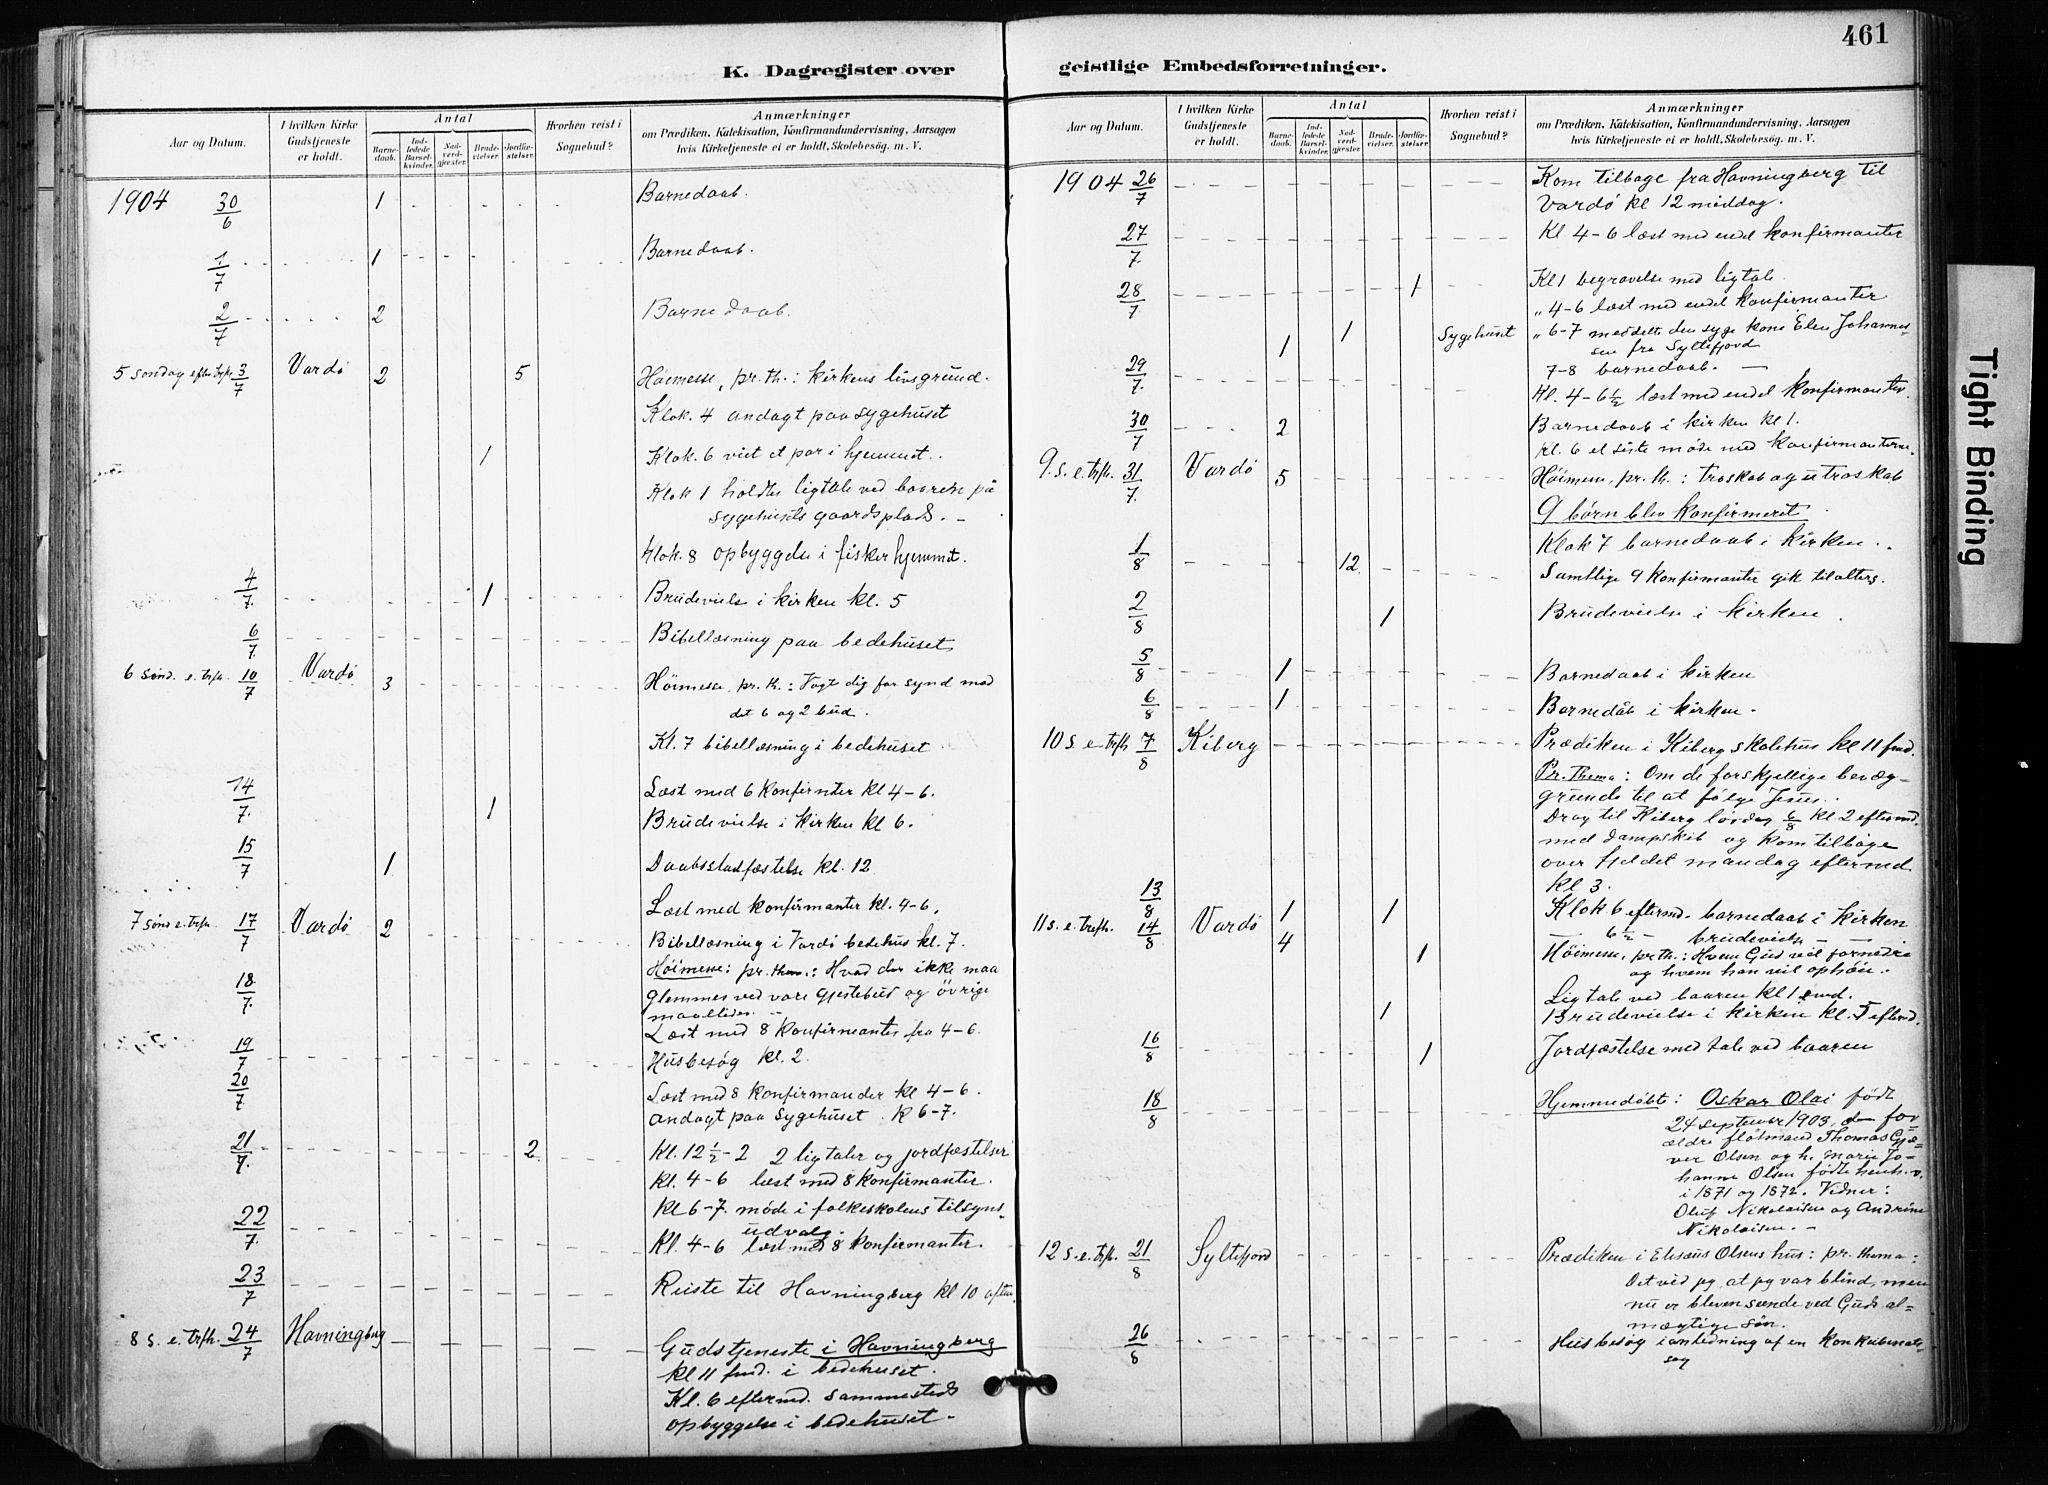 461
K. Dagregister over geistlige Embedsforretninger.
Aar og Datum.
I hvilken Kirke Gudstjeneste er holdt.
Antal
Barnedaab.
Indledede Barselkvinder.
Nadverdgjester.
Brudevielser.
Jordfæstelser.
Hvorhen reist i Sognebud?
Anmærkninger
om Prædiken, Katekisation, Konfirmandundervisning, Aarsagen
hvis Kirketjeneste ei er holdt, Skolebesøg. m. V.
1904 30/6 1 Barnedaab.
1/7 1 Barnedaab.
2/7 2 Barnedaab.
5 søndag efter trft. 3/7 Vardø 2 5 Høimesse, pr. th.: Kirkens livsgrund.
Klok. 4 andagt paa sygehuset
1 Klok. 6 viet et par i hjemmet.
Klok 1 holdtes ligtale ved baaren på
sygehusets gaardsplads. -
Klok. 8 opbyggelse i fiskerhjemmet.
4/7 1 Brudevielse i kirken kl. 5
6/7 Bibellæsning paa bedehuset
6 sønd. e. trfh. 10/7 Vardø 3 Høimesse, pr. th.: Vogt dig for synd mod
det 6 og 2 bud.
Kl. 7 bibellæsning i bedehuset
14/7 Læst med 6 konfirmter kl 4-6.
1 Brudevielse i kirken kl 6.
15/7 1 Daabsstadfæstelse kl. 12
Læst med konfirmanter kl. 4-6.
7 sønd e. trfh. 17/7 Vardø 2 Bibellæsning i Vardø bedehus kl. 7.
Høimesse: pr. them.: Hvad der ikke maa
18/7 glemmes ved vore gjestebud og øvrige
maaltider. -
Læst med 8 konfirmanter fra 4-6.
19/7 Husbesøg kl. 2.
20/7 Læst med 8 konfirmander kl 4-6.
andagt paa sygehuset kl 6-7.
21/7 2 Kl. 12 1/2-2 2 ligtaler og jordfæstelser
kl. 4-6 læst med 8 konfirmanter.
Kl 6-7. møde i folkeskolens tilsyns-
udvalg.
22/7 Kl. 4-6 læst med 8 konfirmanter.
23/7 Reiste til Havningberg kl 10 aften.
8 s. e. trfh. 24/7 Havningberg Gudstjeneste i Havningberg
kl 11 fmd. i bedehuset.
Kl. 6 eftermd. sammesteds
opbyggelse i bedehuset.
Aar og Datum.
I hvilken Kirke Gudstjeneste er holdt.
Antal
Barnedaab.
Indledede Barselkvinder.
Nadverdgjester.
Brudevielser.
Jordfæstelser.
Hvorhen reist i Sognebud?
Anmærkninger
om Prædiken, Katekisation, Konfirmandundervisning, Aarsagen
hvis Kirketjeneste ei er holdt, Skolebesøg. m. V.
1904 26/7 Kom tilbage fra Havningberg til
Vardø kl 12 middag.
27/7 Kl. 4-6 læst med endel konfirmanter
28/7 1 Kl 1 begravelse med ligtale
" 4-6 læst med endel konfirmanter
1 Sygehuset " 6-7 meddelt den syge kone Elen Johannes-
sen fra Syltefjord
1 7-8 barnedaab. -
29/7 Kl. 4-6 1/2 læst med endel konfirmanter.
30/7 2 Barnedaab i kirken kl 1.
Kl. 6 et siste møde med konfirmanterne.
9. s. e. trfh. 31/7 Vardø 5 Høimesse, pr. th.: troskab og utroskab
9 børn blev konfirmeret
Klok 7 barnedaab i kirken.
1/8 12 Samtlige 9 konfirmanter gik tilalters.
2/8 1 Brudevielse i kirken.
5/8 1 Barnedaab i kirken
6/8 1 Barnedåb i kirken.
10 s. e trfh 7/8 Kiberg Prædiken i Kiberg skolehus kl 11 fmd.
Pr. Thema: Om de forskjellige bevæg-
grunde til at følge Jesus.
Drog til Kiberg lørdag 6/8 kl 2 eftermd.
med dampskib og kom tilbage
over fjeldet mandag eftermd.
kl 3.
13/8 1 1 Klok 6 eftermd. barnedaab i kirken
6 1/2 - brudevielse - -
11 s. e. trefh. 14/8 Vardø 4 1 Høimesse, pr th.: Hvem Gud vil fornedre
og hvem han vil ophøie.
Ligtale ved baaren kl 1 emd.
1 Brudevielse i kirken kl. 5 eftmd.
16/8 1 Jordfæstelse med tale ved baaren
18/8 Hjemmedøbt: Oskar Olai født
24 september 1903, den for-
ældre fløtmand Thomas Gjæ-
ver Olsen og h. Marie Jo-
hanne Olsen fødte henh.v.
i 1871 og 1872. Vidner:
Oluf Nikolaisen og Andrine
Nikolaisen. -
12 s. e. trfh. 21/8 Syltefjord Prædiken i Elisæus Olsens hus: pr. thema:
Det ved jeg, at jeg var blind, men
nu er bleven seende ved Guds al-
mægtige søn.
26/8 Husbesøg i anledning af en konkubinats-
sag
Tight Binding